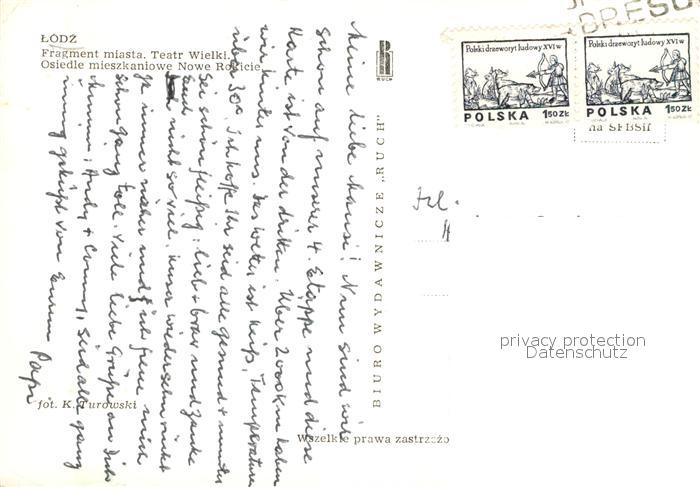 ŁÓDŹ
Fragment miasta. Teatr Wielki.
Osiedle mieszkaniowe Nowe Rokicie.
Meine liebe Mausi! Nun sind wir
schon auf unserer 4. Etappe und diese
Karte ist von der dritten. Über 2000 km haben
wir hinter uns. Das Wetter ist heiß, Temperaturen
über 30° Ich hoffe Ihr seid alle gesund + munter
Sei schön fleißig, lieb + brav und zanke
Euch nicht so viel. Unser Wiedersehn rückt
ja immer näher und ich freue mich
schon ganz toll. Viele liebe Grüße an Dich
Andy + Conny, seid alle ganz
innig geküßt von Eurem Papi
fot. K. Turowski
BIURO WYDAWNICZE „RUCH"
RUCH
Wszelkie prawa zastrzeżo
Polski drzeworyt ludowy XVI w
POLSKA 1.50 ZŁ
Polski drzeworyt ludowy XVI w
POLSKA 1.50 ZŁ
Frl.
privacy protection
Datenschutz